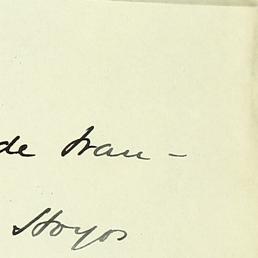 de Frau -
Hoyos